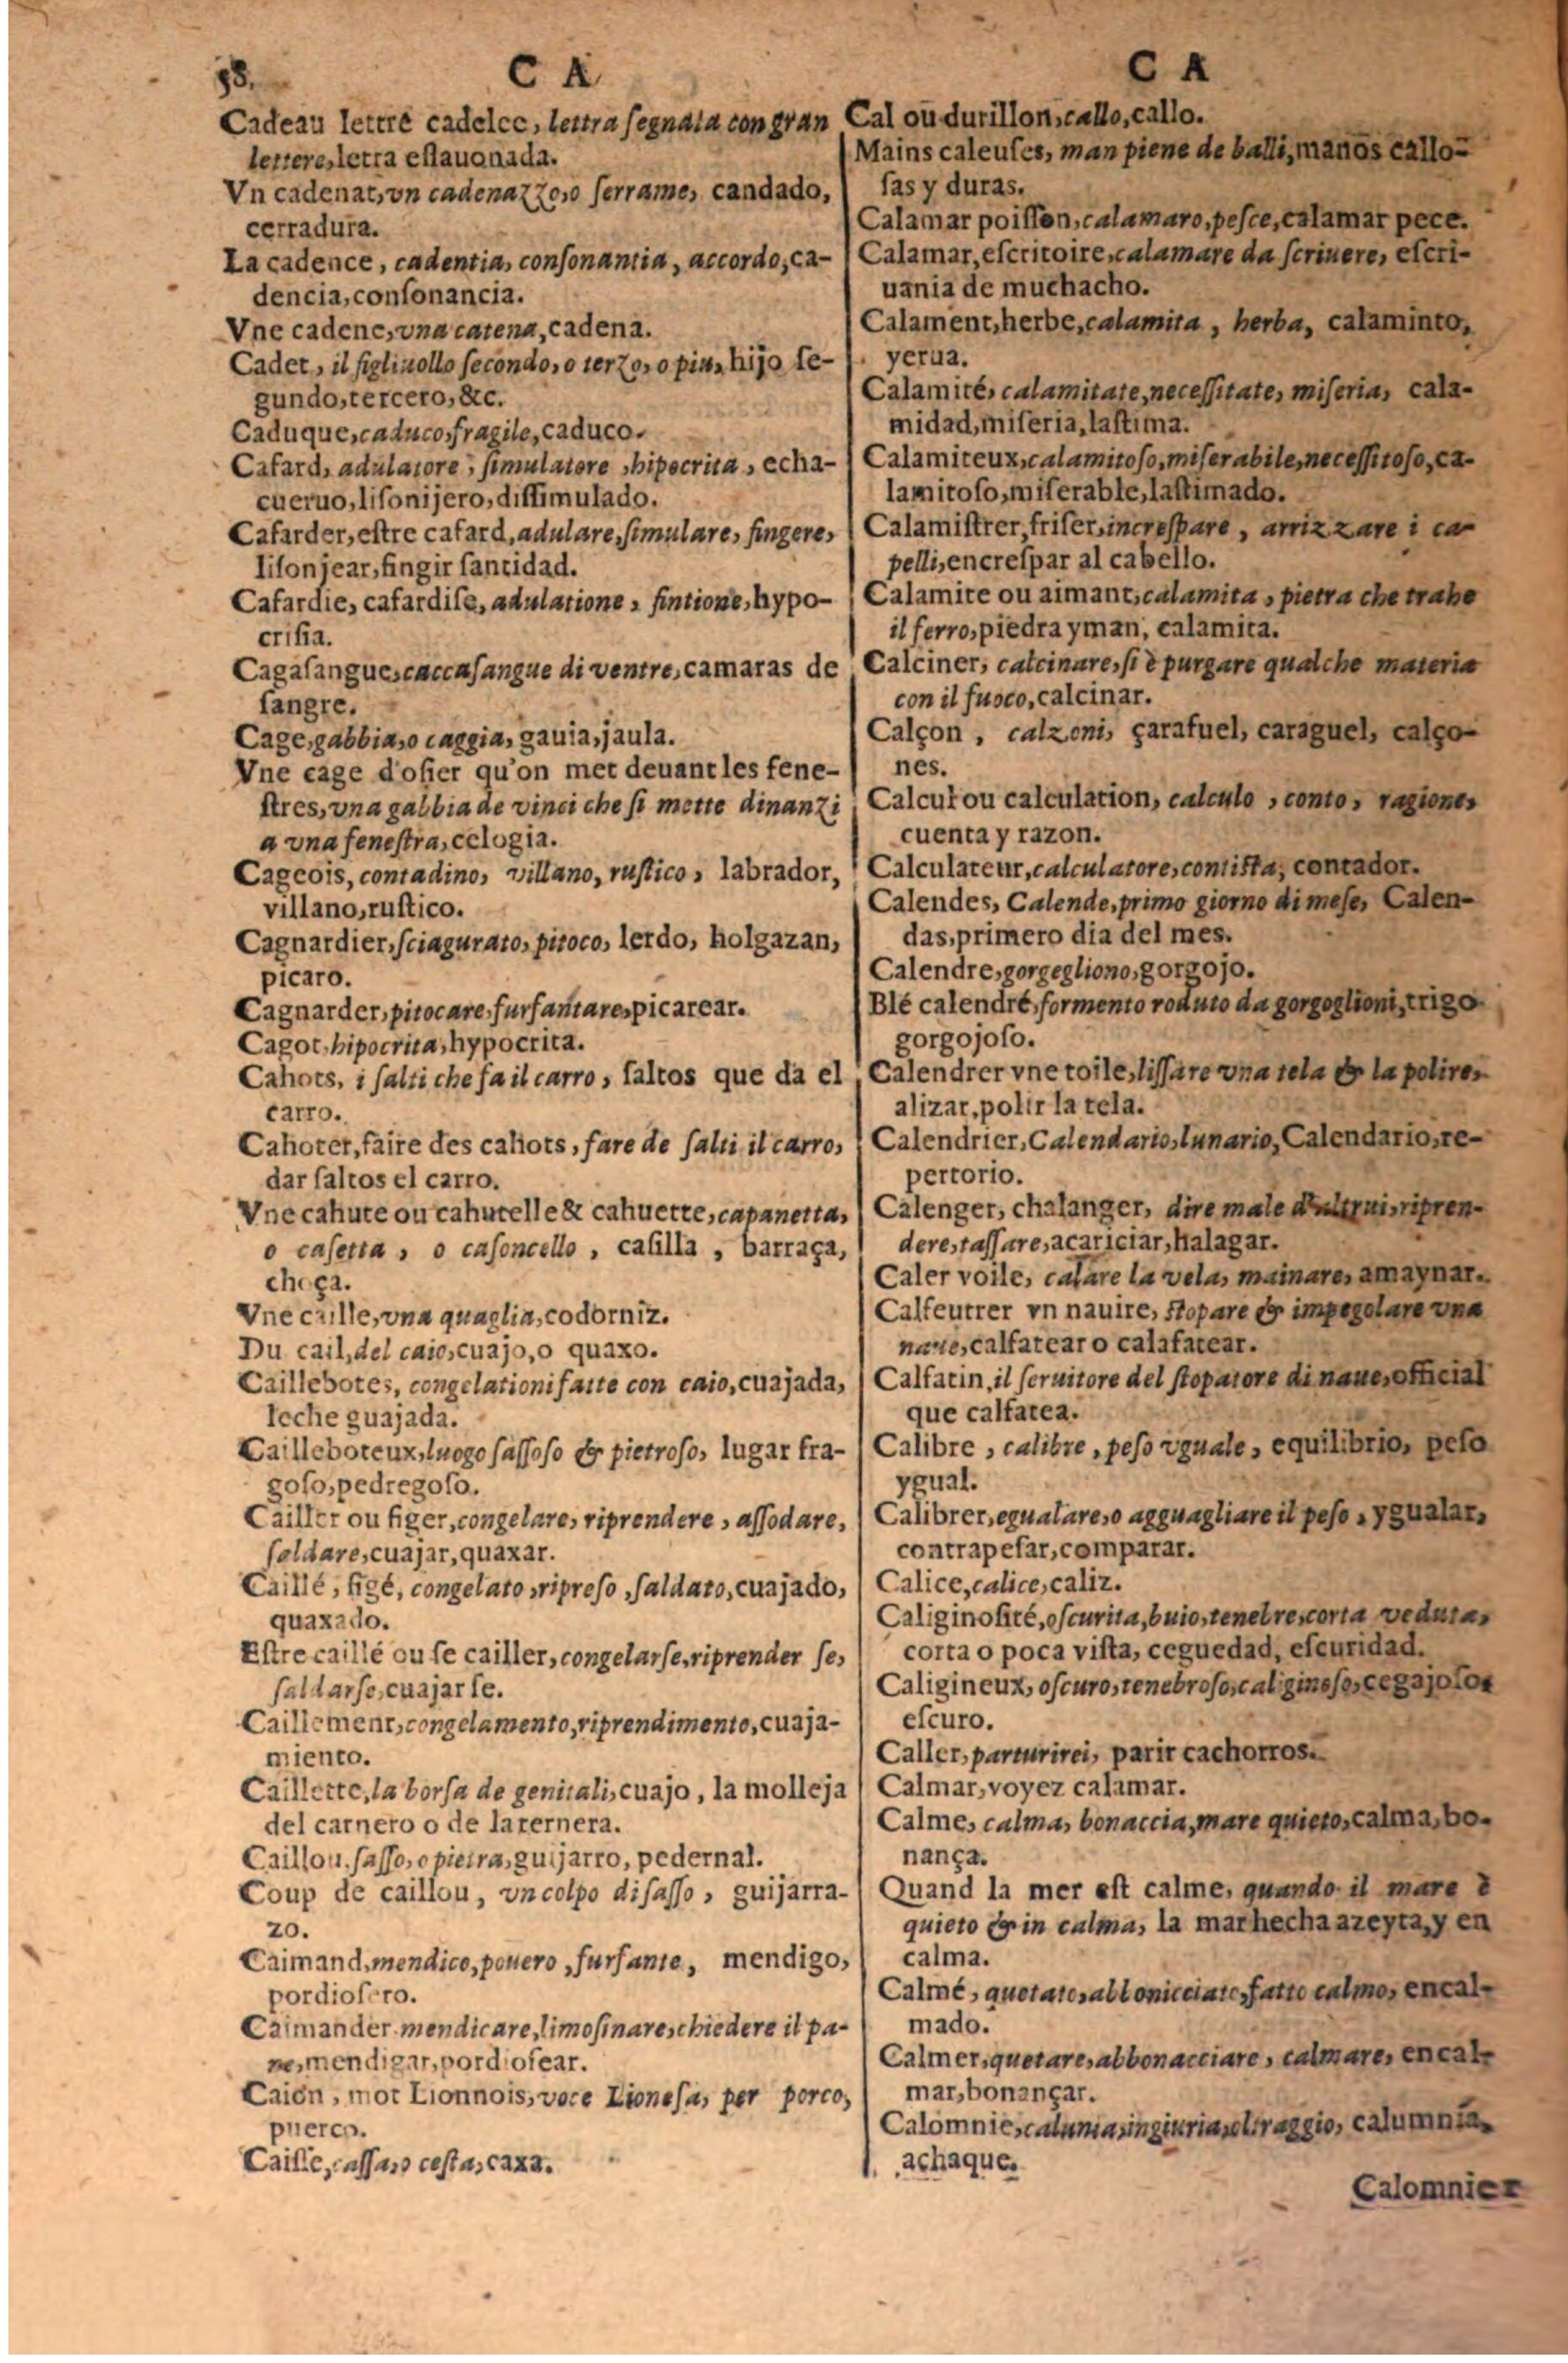 58.
C A
Cadeau lettre cadelee, lettra ſegnala con gran
lettere, letra eſlauonada.
Vn cadenat, vn cadenazzo, o ſerrame, candado,
cerradura.
La cadence, cadentia, conſonantia, accordo, ca-
dencia, conſonancia.
Vne cadene, vna catena, cadena.
Cadet, il figliuollo ſecondo, o terzo, o piu, hijo ſe-
gundo, tercero, &c.
Caduque, caduco, fragile, caduco.
Cafard, adulatore, ſimulatore, hipocrita, echa-
cueruo, liſonijero, diſſimulado.
Cafarder, eſtre cafard, adulare, ſimulare, fingere,
liſonjear, fingir ſantidad.
Cafardie, cafardiſe, adulatione, fintione, hypo-
criſia.
Cagaſangue, caccaſangue di ventre, camaras de
ſangre.
Cage, gabbia, o caggia, gauia, jaula.
Vne cage d'oſier qu'on met deuant les fene-
ſtres, vna gabbia de vinci che ſi mette dinanzi
a vna feneſtra, celogia.
Cageois, contadino, villano, ruſtico, labrador,
villano, ruſtico.
Cagnardier, ſciagurato, pitoco, lerdo, holgazan,
picaro.
Cagnarder, pitocare, furfantare, picarear.
Cagot, hipocrita, hypocrita.
Cahots, i ſalti che fa il carro, ſaltos que da el
carro.
Cahoter, faire des cahots, fare de ſalti il carro,
dar ſaltos el carro.
Vne cahute ou cahutelle & cahuette, capanetta,
o caſetta, o caſoncello, caſilla, barraça,
choça.
Vne caille, vna quaglia, codorniz.
Du cail, del caio, cuajo, o quaxo.
Caillebotes, congelationi fatte con caio, cuajada,
leche guajada.
Cailleboteux, luogo ſaſſoso & pietroſo, lugar fra-
goſo, pedregoſo.
Cailler ou figer, congelare, riprendere, aſſodare,
ſaldare, cuajar, quaxar.
Caillé, figé, congelato, ripreſo, ſaldato, cuajado,
quaxado.
Eſtre caillé ou ſe cailler, congelarſe, riprender ſe,
ſaldarſe, cuajarſe.
Caillement, congelamento, riprendimento, cuaja-
miento.
Caillette, la borſa de genitali, cuajo, la molleja
del carnero o de la ternera.
Caillou, ſaſſo, o pietra, guijarro, pedernal.
Coup de caillou, vn colpo di ſaſſo, guijarra-
zo.
Caimand, mendico, pouero, furfante, mendigo,
pordioſero.
Caimander, mendicare, limoſinare, chiedere il pa-
ne, mendigar, pordioſear.
Caion, mot Lionnois, voce Lioneſa, per porco,
puerco.
Caiſſe, caſſa, o ceſta, caxa.
C A
Cal ou durillon, callo, callo.
Mains caleuſes, man piene de balli, manos callo-
ſas y duras.
Calamar poiſſon, calamaro, peſce, calamar pece.
Calamar, eſcritoire, calamare da ſcriuere, eſcri-
uania de muchacho.
Calament, herbe, calamita, herba, calaminto,
yerua.
Calamité, calamitate, neceſſitate, miſeria, cala-
midad, miſeria, laſtima.
Calamiteux, calamitoſo, miſerabile, neceſſitoſo, ca-
lamitoſo, miſerable, laſtimado.
Calamiſtrer, friſer, increſpare, arrizzare i ca-
pelli, encreſpar al cabello.
Calamite ou aimant, calamita, pietra che trahe
il ferro, piedra yman, calamita.
Calciner, calcinare, ſi è purgare qualche materia
con il fuoco, calcinar.
Calçon, calzoni, çarafuel, caraguel, calço-
nes.
Calcul ou calculation, calculo, conto, ragione,
cuenta y razon.
Calculateur, calculatore, contiſta, contador.
Calendes, Calende, primo giorno di meſe, Calen-
das, primero dia del mes.
Calendre, gorgegliono, gorgojo.
Blé calendré, formento roduto da gorgoglioni, trigo
gorgojoſo.
Calendrer vne toile, liſſare vna tela & la polire,
alizar, polir la tela.
Calendrier, Calendario, lunario, Calendario, re-
pertorio.
Calenger, chalanger, dire male d'altrui, ripren-
dere, taſſare, acariciar, halagar.
Caler voile, calare la vela, mainare, amaynar.
Calfeutrer vn nauire, ſtopare & impegolare vna
naue, calfatear o calafatear.
Calfatin, il ſeruitore del ſtopatore di naue, official
que calfatea.
Calibre, calibre, peſo vguale, equilibrio, peſo
ygual.
Calibrer, egualare, o agguagliare il peſo, ygualar,
contrapeſar, comparar.
Calice, calice, caliz.
Caliginoſité, oſcurita, buio, tenebre, corta veduta,
corta o poca viſta, ceguedad, eſcuridad.
Caligineux, oſcuro, tenebroſo, caliginoſo, cegajoſo,
eſcuro.
Caller, parturirei, parir cachorros.
Calmar, voyez calamar.
Calme, calma, bonaccia, mare quieto, calma, bo-
nança.
Quand la mer eſt calme, quando il mare è
quieto & in calma, la mar hecha azeyta, y en
calma.
Calmé, quetato, abbonicciato, fatto calmo, encal-
mado.
Calmer, quetare, abbonacciare, calmare, encal-
mar, bonançar.
Calomnie, calunia, ingiuria, oltraggio, calumnia,
achaque.
Calomnier